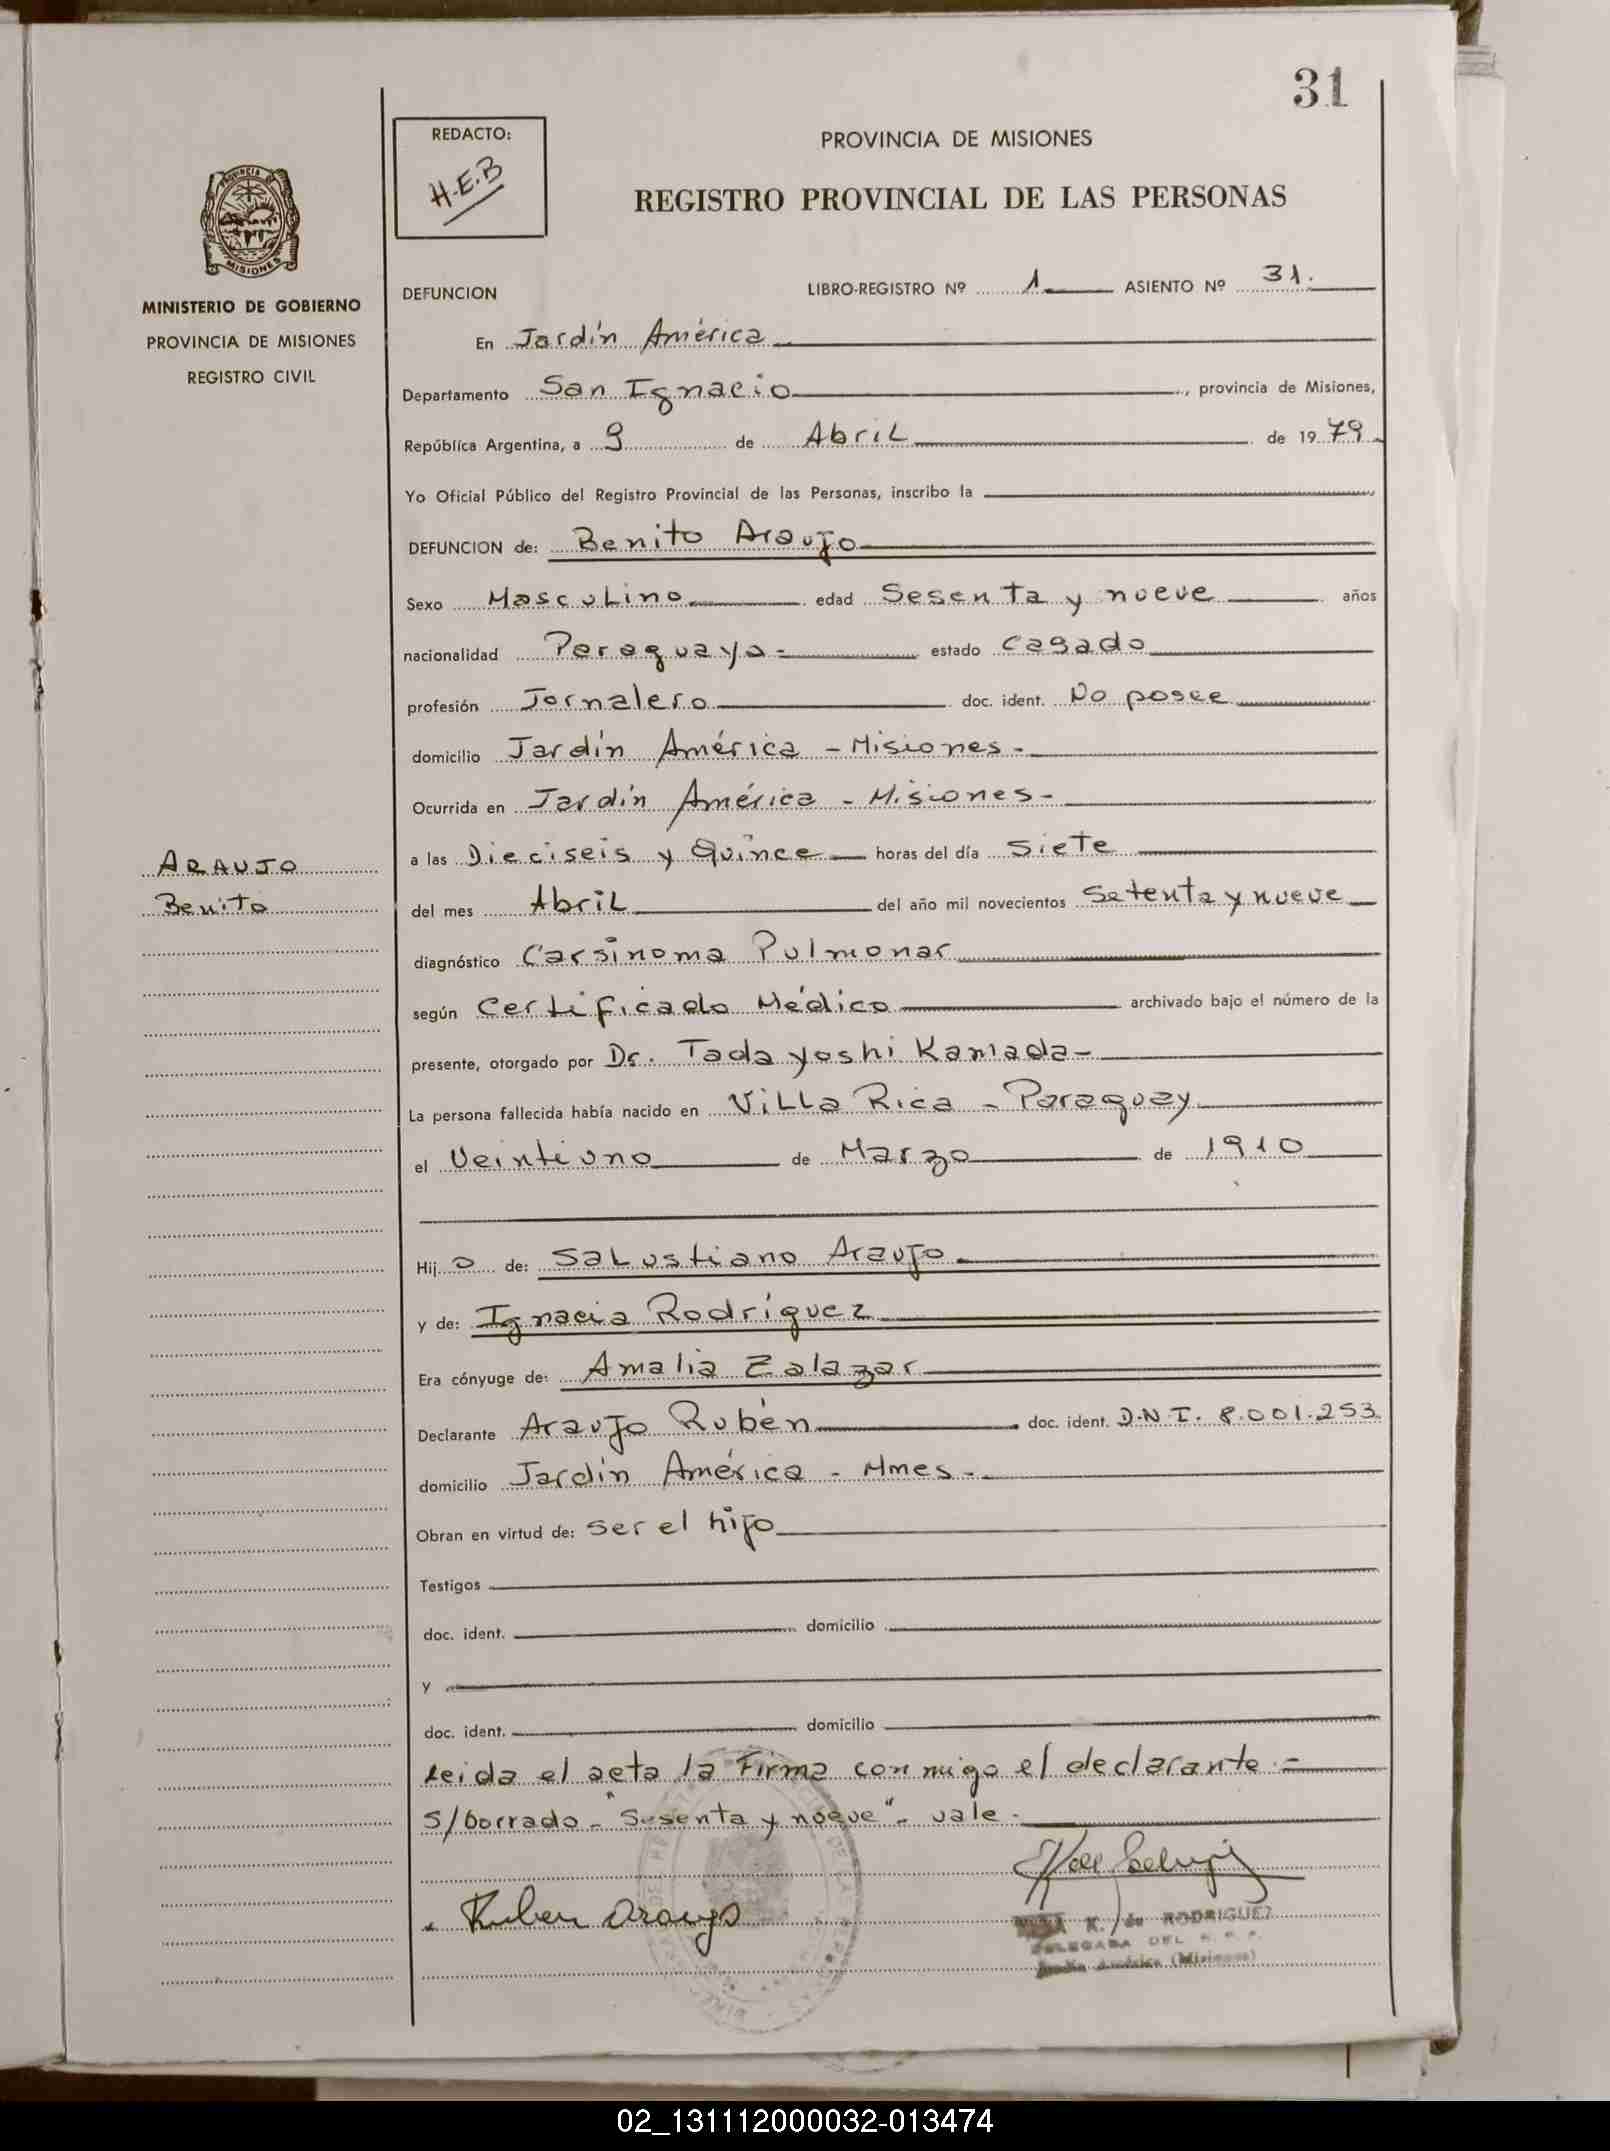 31
REDACTO:
H.E.B
PROVINCIA DE MISIONES
REGISTRO PROVINCIAL DE LAS PERSONAS
PROVINCIA DE
MISIONES
MINISTERIO DE GOBIERNO
PROVINCIA DE MISIONES
REGISTRO CIVIL
DEFUNCION LIBRO-REGISTRO Nº 1 ASIENTO Nº 31.
En Jardín América
Departamento San Ignacio, provincia de Misiones,
República Argentina, a 9 de Abril de 1979
Yo Oficial Público del Registro Provincial de las Personas, inscribo la
DEFUNCION de: Benito Araujo
Sexo Masculino edad Sesenta y nueve años
nacionalidad Paraguaya- estado casado
profesión Jornalero doc. ident. No posee
domicilio Jardín América - Misiones -
Ocurrida en Jardín América - Misiones -
a las Dieciseis y Quince horas del día Siete
del mes Abril del año mil novecientos Setenta y nueve
diagnóstico Carsinoma Pulmonar
según Certificado Médico archivado bajo el número de la
presente, otorgado por Dr. Tadayoshi Kamada-
La persona fallecida había nacido en Villa Rica - Paraguay
el Veintiuno de Marzo de 1910
Hijo de: Salustiano Araujo
y de: Ignacia Rodríguez
Era cónyuge de: Amalia Zalazar
Declarante Araujo Rubén doc. ident. D.N.I. 8.001.253
domicilio Jardín América - Mnes -
Obran en virtud de: ser el hijo
Testigos
doc. ident. domicilio
y
doc. ident. domicilio
Leida el acta la Firma conmigo el declarante -
S/borrado - "Sesenta y nueve" - vale -
Ruben Araujo
K. de RODRIGUEZ
DELEGADA DEL R. P. P.
Jardín América (Misiones)
ARAUJO
Benito
02_131112000032-013474